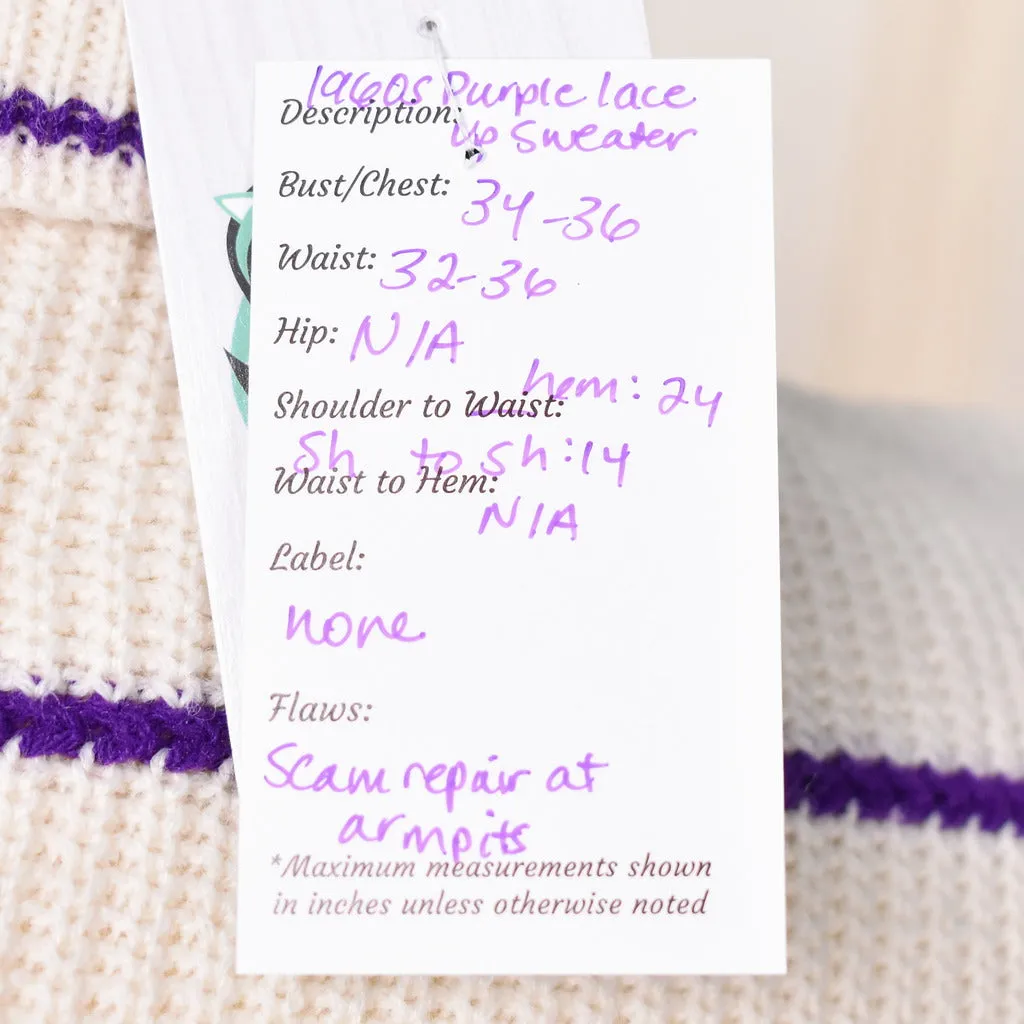 Description: 1960s Purple lace
up Sweater
Bust/Chest: 34-36
Waist: 32-36
Hip: N/A
hem: 24
Shoulder to Waist:
Sh to Sh: 14
Waist to Hem:
N/A
Label:
none
Flaws:
Seam repair at
armpits
*Maximum measurements shown
in inches unless otherwise noted